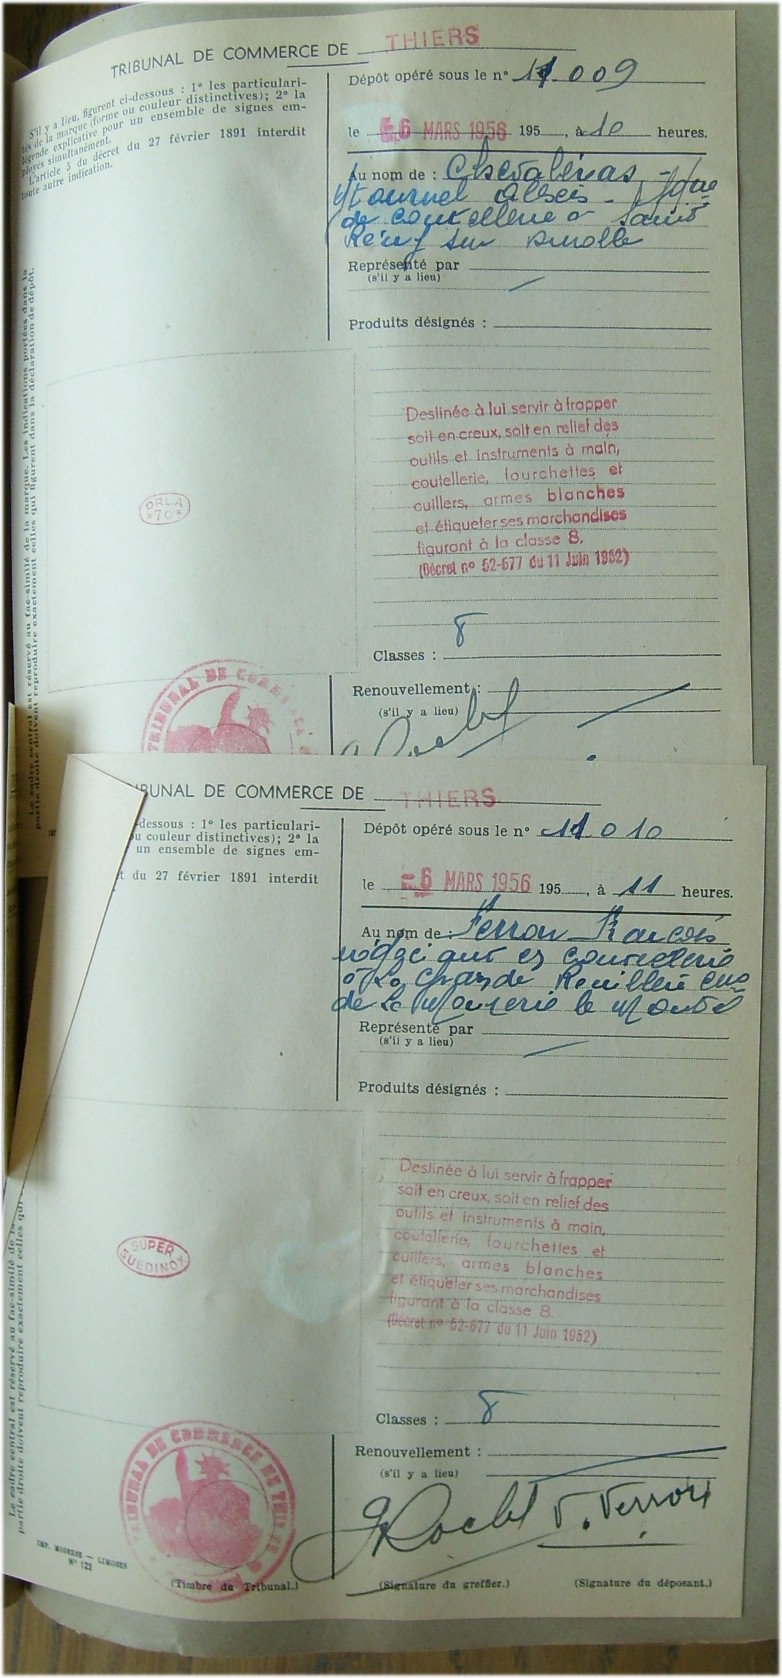 TRIBUNAL DE COMMERCE DE THIERS
S'il y a lieu, figurent ci-dessous : 1º les particulari-
tés de la marque (forme ou couleur distinctives); 2º la
légende explicative pour un ensemble de signes em-
ployés simultanément.
L'article 5 du décret du 27 février 1891 interdit
toute autre indication.
Dépôt opéré sous le nº 11009
le -6 MARS 1956 195 , à 10 heures.
Au nom de : Chevalérias -
Tournel
de coutellerie à Saint
Rémy sur Durolle
Représenté par
(s'il y a lieu)
Produits désignés :
Le cadre central est réservé au fac-similé de la marque. Les indications portées dans la
partie droite doivent reproduire exactement celles qui figurent dans la déclaration de dépôt.
ORLA
*70*
Destinée à lui servir à frapper
soit en creux, soit en relief des
outils et instruments à main,
coutellerie, fourchettes et
cuillers, armes blanches
et étiqueter ses marchandises
figurant à la classe 8.
(Décret nº 52-677 du 11 Juin 1952)
Classes : 8
Renouvellement :
(s'il y a lieu)
TRIBUNAL DE COMMERCE
Rochl
BUNAL DE COMMERCE DE THIERS
-dessous : 1º les particulari-
u couleur distinctives); 2º la
un ensemble de signes em-
t du 27 février 1891 interdit
Dépôt opéré sous le nº 11010
le -6 MARS 1956 195 , à 11 heures.
Au nom de : Ferron François
négociant en coutellerie
à La Grande
de La Monnerie le Montel
Représenté par
(s'il y a lieu)
Produits désignés :
Le cadre central est réservé au fac-similé de la
partie droite doivent reproduire exactement celles qui
SUPER
SUEDINOX
Destinée à lui servir à frapper
soit en creux, soit en relief des
outils et instruments à main,
coutellerie, fourchettes et
cuillers, armes blanches
et étiqueter ses marchandises
figurant à la classe 8.
(Décret nº 52-677 du 11 Juin 1952)
Classes : 8
Renouvellement :
(s'il y a lieu)
TRIBUNAL DE COMMERCE DE THIERS
IMP. MODERNE — LIMOGES
Nº 122
(Timbre du Tribunal.)
(Signature du greffier.)
(Signature du déposant.)